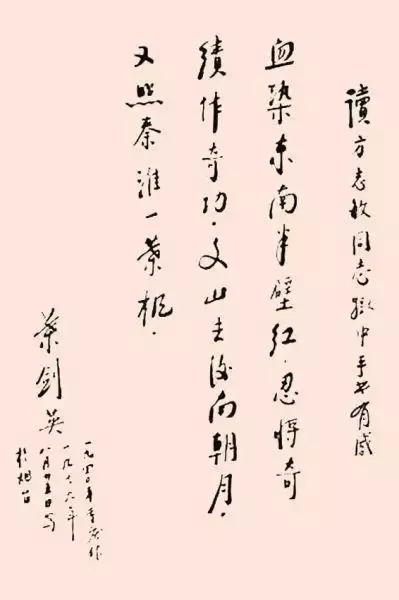 讀方志敏同志獄中手书有感
血染東南半壁紅.忍將奇
績作奇功.文山去後南朝月.
又照秦淮一葉楓.
葉剑英
一九四〇年重慶作
一九六六年
八月廿五日写
於烟台